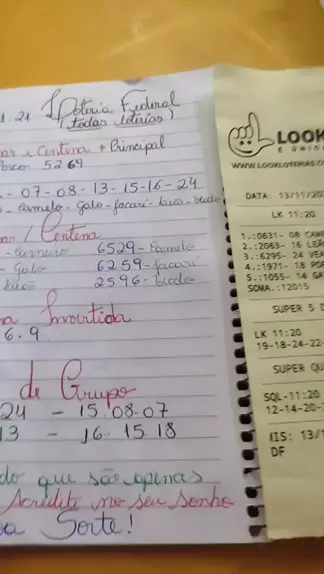 21 Loteria Federal
(todas loterias)
e Centena + Principal
5269
- 07-08-13-15-16-24
camelo- galo-jacaré-
/ Centena
- carneiro 6529- Camelo
- Galo 6259-jacaré
2596-
Invirtida
6.9
de Grupo
24 - 15.08.07
13 - 16.15.18
do que são apenas
Acredite no seu sonho
Sorte!
LOOK
E ÚNICA
WWW.LOOKLOTERIAS.CO
DATA: 13/11/202
LK 11:20
1.:0631- 08 CAME
2.:2063- 16 LEÃO
3.:6295- 24 VEA
4.:1971- 18 POR
5.:1055- 14 GA
SOMA.:12015
SUPER 5 D
LK 11:20
19-18-24-22-
SUPER QU
SQL-11:20
12-14-20-
IIS: 13/1
DF